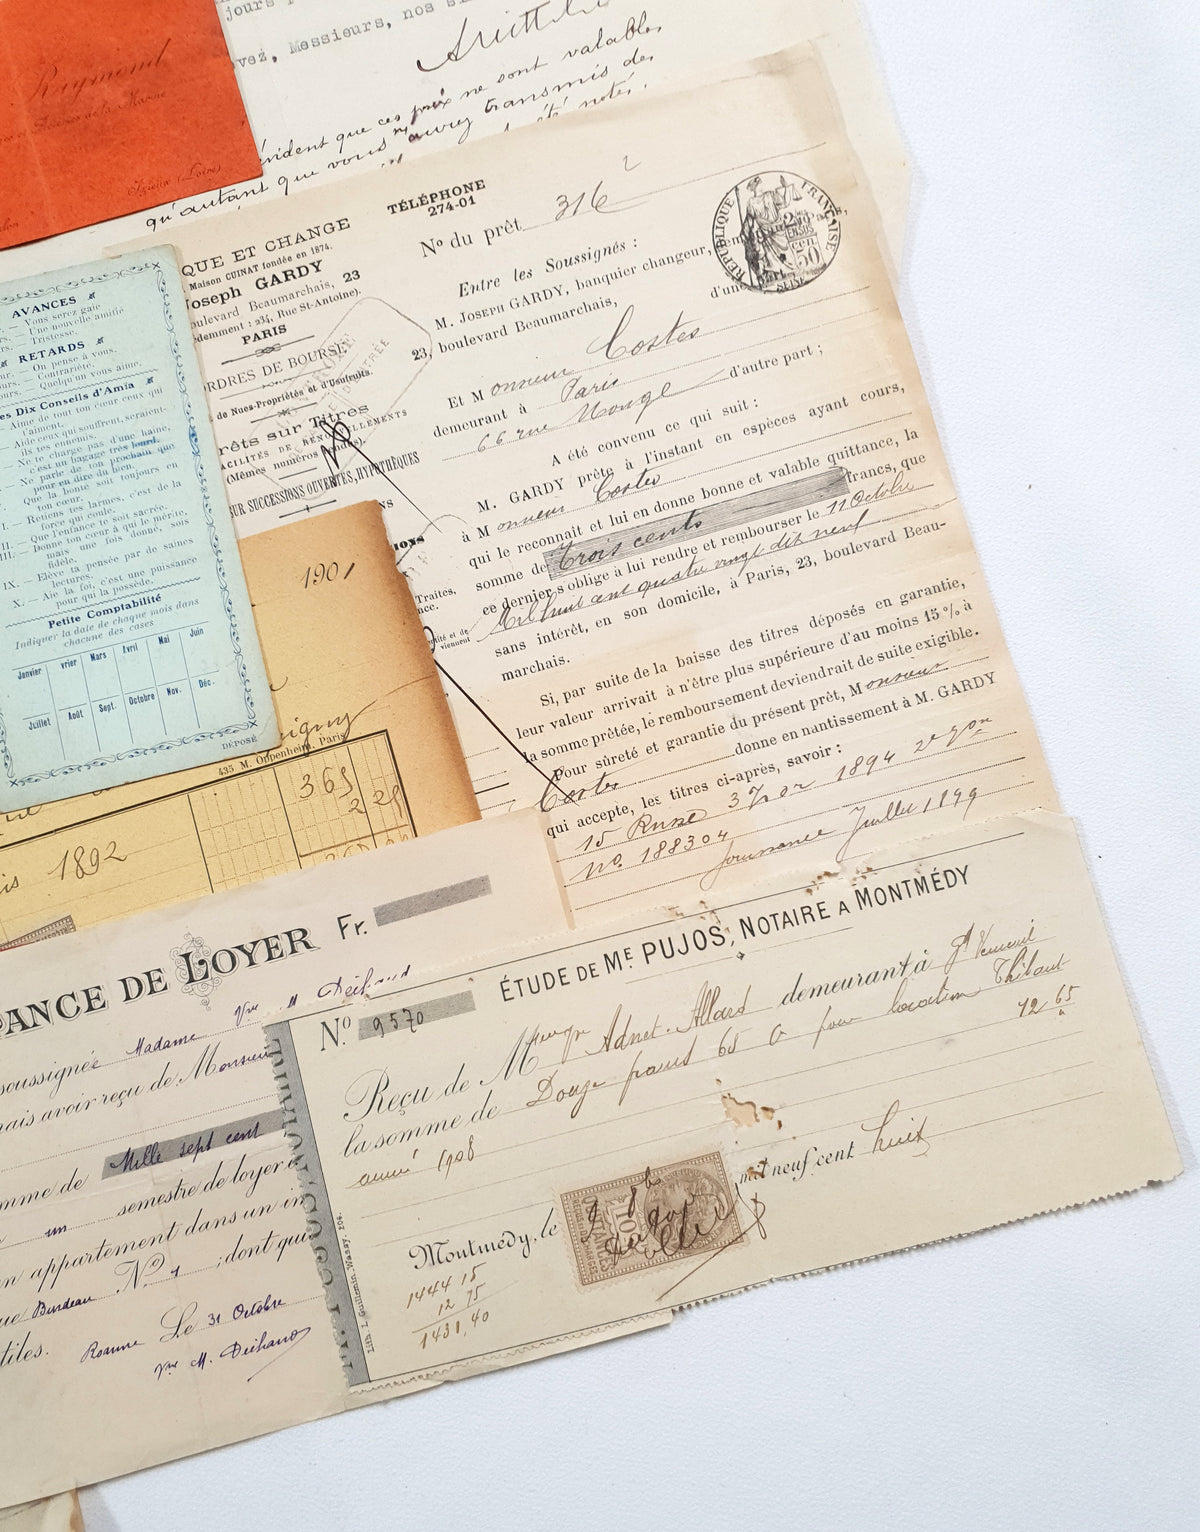 jours
vez, Messieurs, nos
évident que ces prix ne sont valables
qu'autant que vous aurez transmis des
été notés.
Raymond
de la Marne
(Loire)
AVANCES
— Vous serez gaie
— Une nouvelle amitié
— Tristesse.
RETARDS
— On pense à vous.
— Contrariété.
Quelqu'un vous aime.
es Dix Conseils d'Amia
— Aime de tout ton cœur ceux qui
t'aiment.
— Aide ceux qui souffrent, seraient-
ils tes ennemis.
— Ne te charge pas d'une haine,
c'est un bagage très lourd.
— Ne parle de ton prochain que
pour en dire du bien.
Que la bonté soit toujours en
ton cœur.
I. — Retiens tes larmes, c'est de la
force qui coule.
II. — Que l'enfance te soit sacrée.
III. — Donne ton cœur à qui le mérite,
mais une fois donné, sois
fidèle.
IX. — Elève ta pensée par de saines
lectures.
X. — Aie la foi, c'est une puissance
pour qui la possède.
Petite Comptabilité
Indiquer la date de chaque mois dans
chacune des cases
Janvier vrier Mars Avril Mai Juin
Juillet Août Sept. Octobre Nov. Déc.
DÉPOSÉ
QUE ET CHANGE
Maison GUINAT fondée en 1874.
Joseph GARDY
oulevard Beaumarchais, 23
édemment : 234, Rue St-Antoine).
PARIS
ORDRES DE BOURSE
de Nues-Propriétés et d'Usufruits.
rêts sur Titres
ACILITÉS DE RENOUVELLEMENTS
(Mêmes numéros rendus).
SUR SUCCESSIONS OUVERTES, HYPOTHÈQUES
NS
IONS
Traites,
nce.
viennent
TÉLÉPHONE
274-01
No du prêt 316
RÉPUBLIQUE FRANÇAISE
50
Entre les Soussignés :
M. Joseph GARDY, banquier changeur, demeurant à Paris,
23, boulevard Beaumarchais, d'une
Et Monsieur Costes
demeurant à Paris
66 rue Monge d'autre part ;
A été convenu ce qui suit :
M. GARDY prête à l'instant en espèces ayant cours,
à Monsieur Costes
qui le reconnaît et lui en donne bonne et valable quittance, la
somme de Trois cents francs, que
ce dernier s'oblige à lui rendre et rembourser le 11 Octobre
Mil huit cent quatre vingt dix neuf
sans intérêt, en son domicile, à Paris, 23, boulevard Beau-
marchais.
Si, par suite de la baisse des titres déposés en garantie,
leur valeur arrivait à n'être plus supérieure d'au moins 15 % à
la somme prêtée, le remboursement deviendrait de suite exigible.
Pour sûreté et garantie du présent prêt, Monsieur
Costes donne en nantissement à M. GARDY
qui accepte, les titres ci-après, savoir :
15 Russe 3% or 1894 2e
no. 188304
Jouissance Juillet 1899
1901
435 M. Oppenheim, Paris
365
2 25
1892
ANCE DE LOYER Fr.
soussignée Madame Vve M. Déchaud
nais avoir reçu de Monsieur
mme de Mille sept cent
un semestre de loyer d
n appartement dans un im
ue Burdeau No 1 ; dont qui
tiles.
Roanne Le 31 Octobre
Vve M. Déchaud
ÉTUDE DE Me PUJOS, NOTAIRE A MONTMÉDY
No 9570
Reçu de M Adnet-Allard demeurant à Gd Verneuil
la somme de Douze francs 65 c pour location Thibaut
année 1908 12 65
Montmédy, le mil neuf cent huit
10
QUITTANCES
1444 15
12 75
1431,40
Lith. J. Guillemin, Wassy. 205.